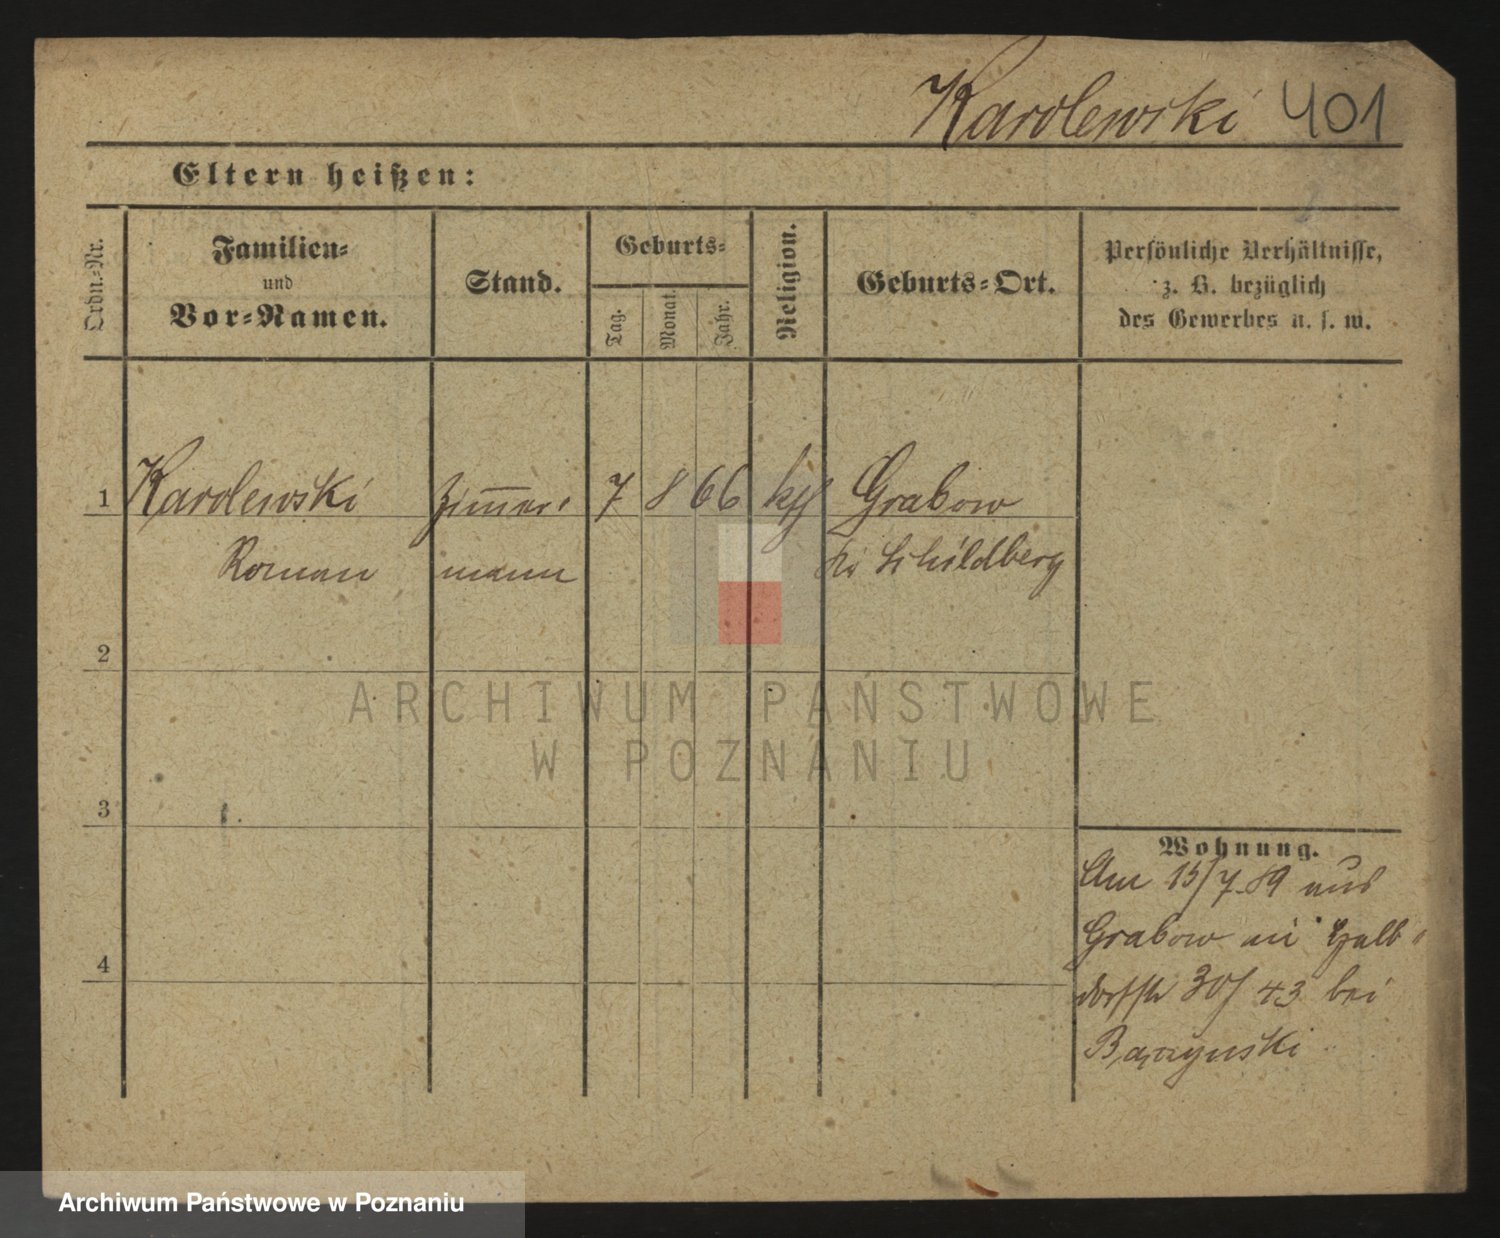 Karolewski 401
Eltern heißen:
Ordn.-Nr.
Familien-
und
Vor-Namen.
Stand.
Geburts-
Tag.
Monat.
Jahr.
Religion.
Geburts-Ort.
Persönliche Verhältnisse,
z. B. bezüglich
des Gewerbes u. s. w.
1 Karolewski Zimmer- 7 8 66 kth Grabow
Roman mann Kr Schildberg
2
3
4
Wohnung.
Am 15/7.89 aus
Grabow nü Halb-
dorfstr 30/43 bei
Baczynski
ARCHIWUM PAŃSTWOWE
W POZNANIU
Archiwum Państwowe w Poznaniu